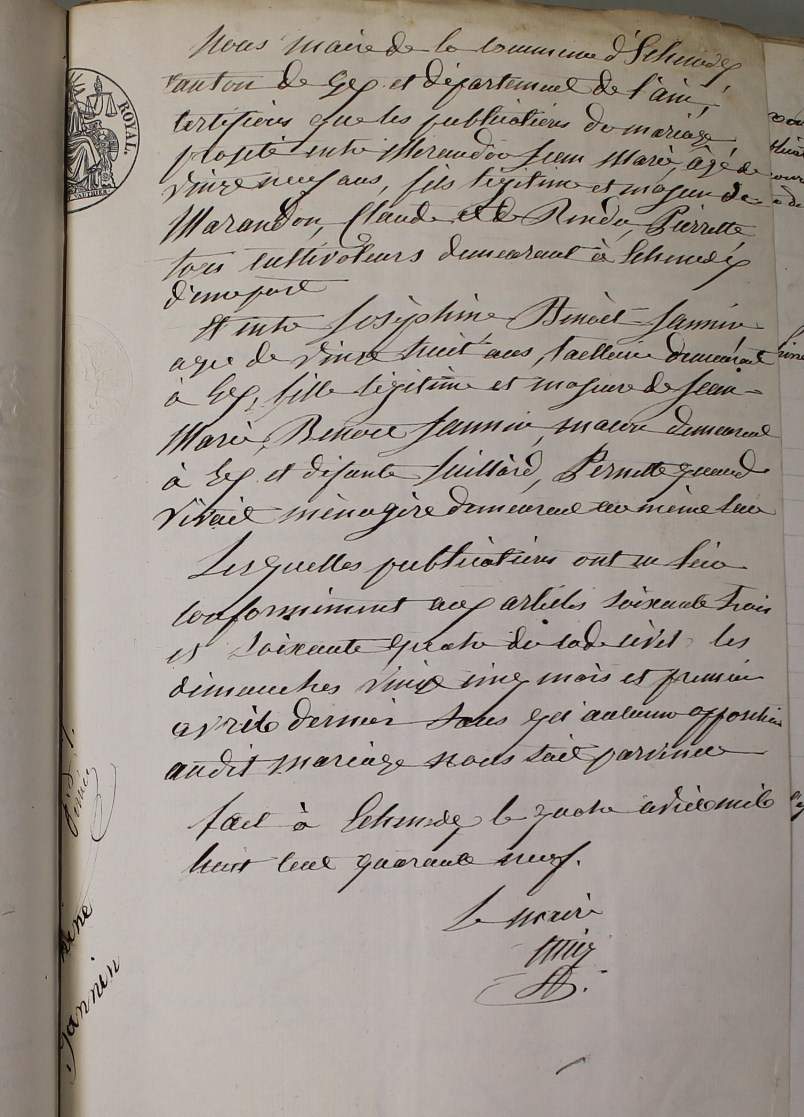 ROYAL.
Nous maire de la commune d'Echenevex
canton de Gex et département de l'ain,
certifions que les publications du mariage
projeté entre Marandon Jean Marie, âgé de
vingt neuf ans, fils légitime et majeur de
Marandon, Claude et de Pierrette
tous cultivateurs demeurant à Echenevex
d'une part
Et entre Joséphine Benoit Jannin
agée de vingt huit ans, tailleuse demeurant
à Gex, fille légitime et majeure de Jean-
Marie, Benoit Jannin, maçon demeurant
à Gex et défunte Juillard, Pernette quand
vivait ménagère demeurant au même lieu
Lesquelles publications ont eu lieu
conformément aux articles soixante trois
et soixante quatre du code civil les
dimanches vingt cinq mars et premier
avril dernier sans qu'aucune opposition
audit mariage nous soit parvenue
fait à Echenevex le quatre avril mil
huit cent quarante neuf.
Le maire
Jannin